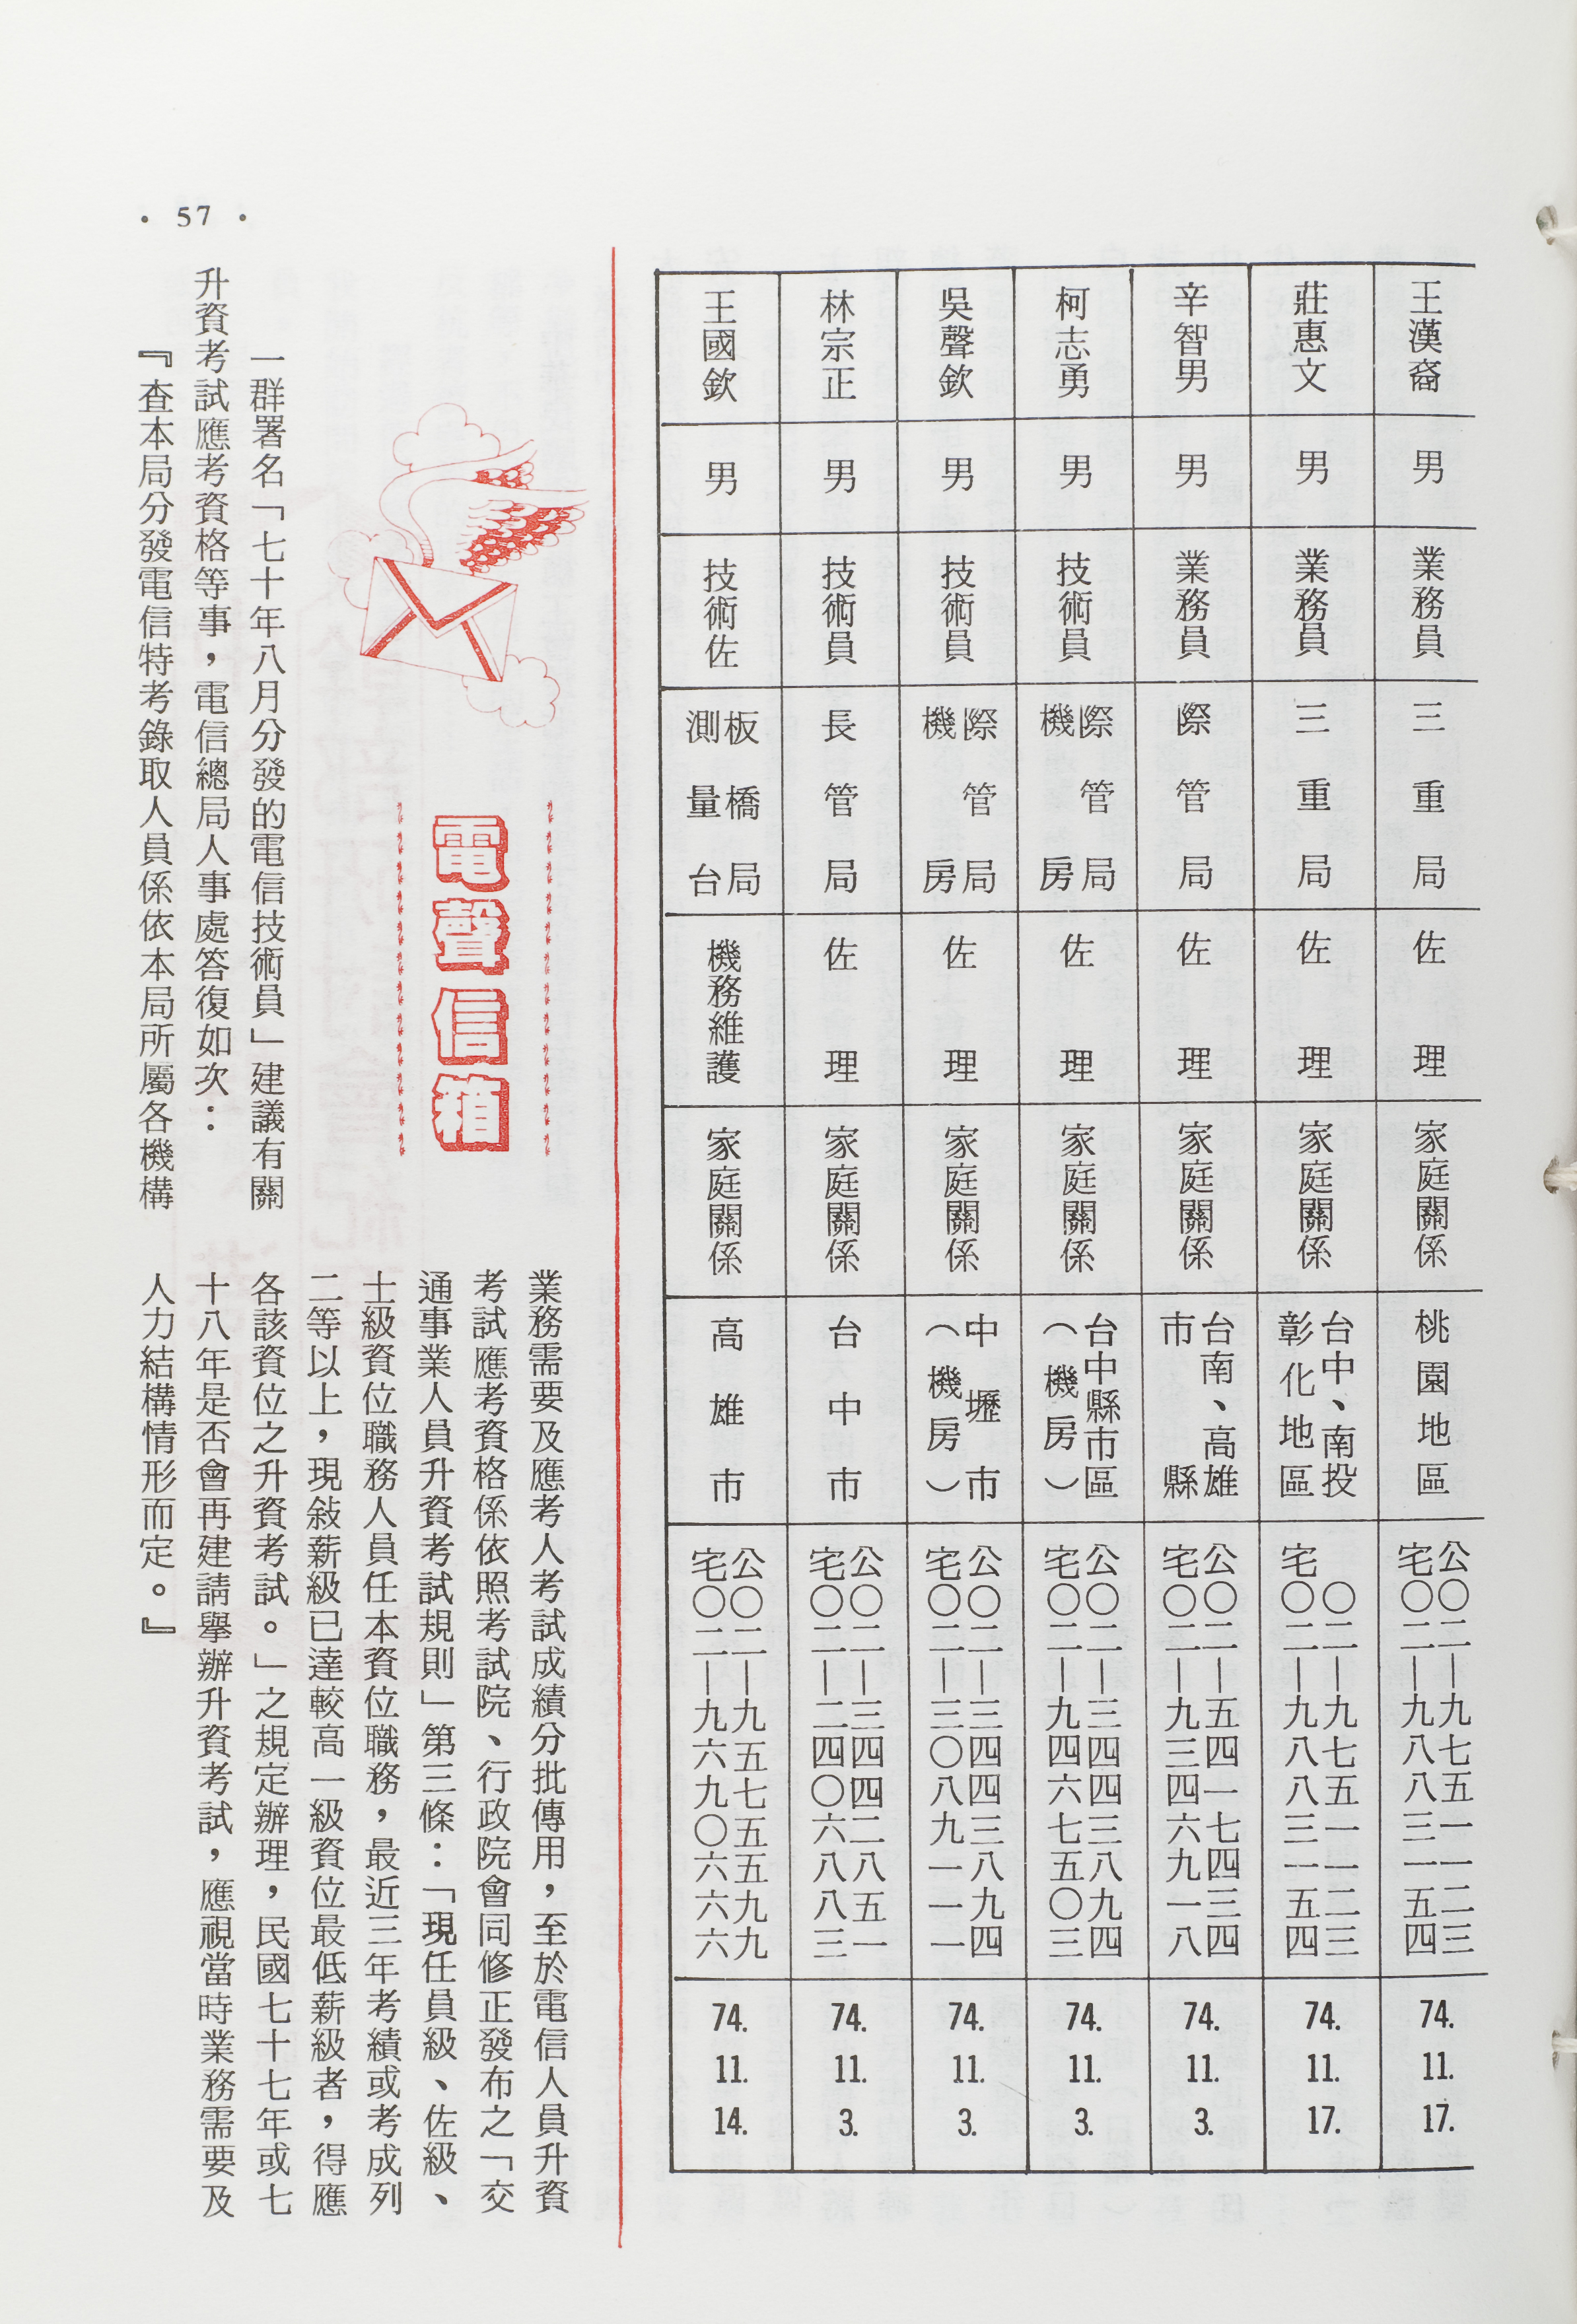 王漢裔
男
業務員
三重局
佐理
家庭關係
桃園地區
公〇二—九七五一一二三
宅〇二—九八八三一五四
74. 11. 17.
莊惠文
男
業務員
三重局
佐理
家庭關係
台中、南投
彰化地區
〇二—九七五一一二三
宅〇二—九八八三一五四
74. 11. 17.
辛智男
男
業務員
際管局
佐理
家庭關係
台南、高雄
市縣
公〇二—五四一七四三四
宅〇二—九三四六九一八
74. 11. 3.
柯志勇
男
技術員
際管局
機房
佐理
家庭關係
台中縣市區
（機房）
公〇二—三四四三八九四
宅〇二—九四六七五〇三
74. 11. 3.
吳聲欽
男
技術員
際管局
機房
佐理
家庭關係
中壢市
（機房）
公〇二—三四四三八九四
宅〇二—三〇八九一一一
74. 11. 3.
林宗正
男
技術員
長管局
佐理
家庭關係
台中市
公〇二—三四四二八五一
宅〇二—二四〇六八八三
74. 11. 3.
王國欽
男
技術佐
板橋局
測量台
機務維護
家庭關係
高雄市
公〇二—九五七五五九九
宅〇二—九六九〇六六六
74. 11. 14.
電聲信箱
一群署名「七十年八月分發的電信技術員」建議有關
升資考試應考資格等事，電信總局人事處答復如次：
『查本局分發電信特考錄取人員係依本局所屬各機構
業務需要及應考人考試成績分批傳用，至於電信人員升資
考試應考資格係依照考試院、行政院會同修正發布之「交
通事業人員升資考試規則」第三條：「現任員級、佐級、
士級資位職務人員任本資位職務，最近三年考績或考成列
二等以上，現敍薪級已達較高一級資位最低薪級者，得應
各該資位之升資考試。」之規定辦理，民國七十七年或七
十八年是否會再建請舉辦升資考試，應視當時業務需要及
人力結構情形而定。』
• 57 •